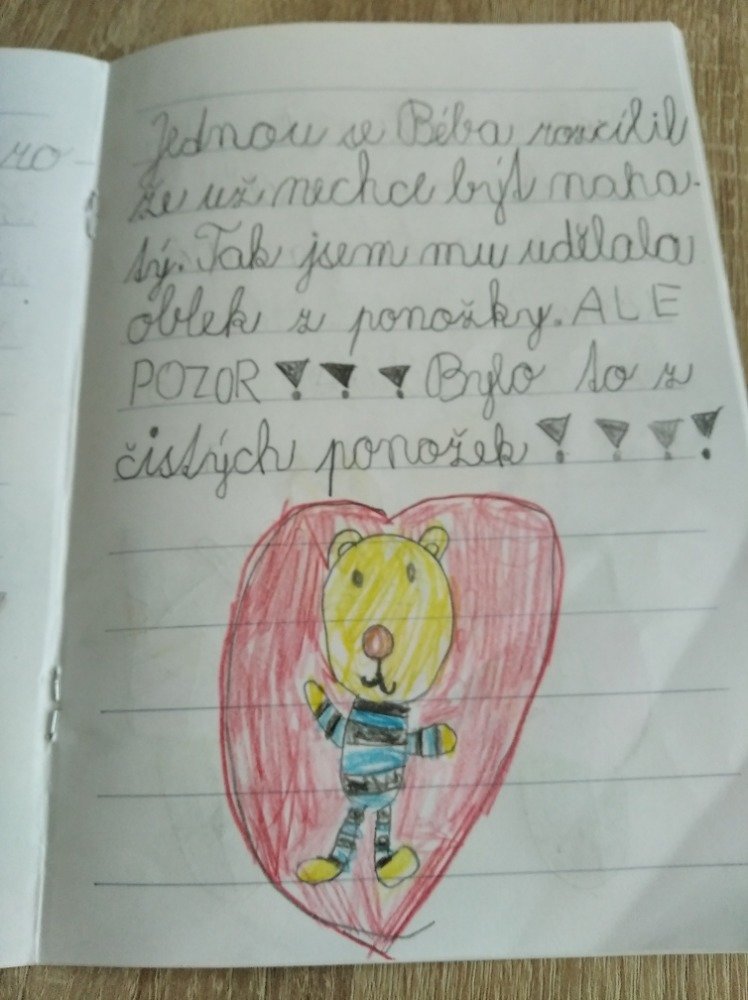 ro-
Jednou se Béba rozčílil
že už nechce být naha-
tý. Tak jsem mu udělala
oblek z ponožky. ALE
POZOR!!! Bylo to z
čistých ponožek!!!!